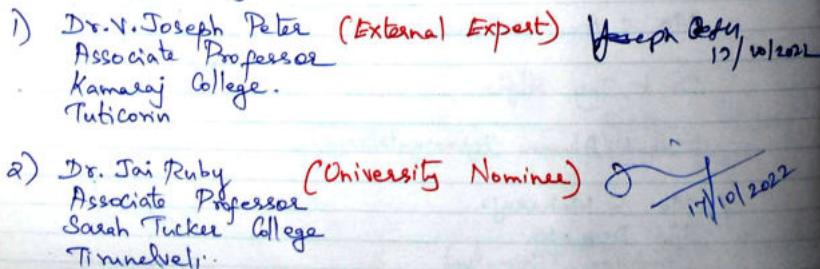 1) Dr. V. Joseph Peter (External Expert) Joseph Peter
17/10/2022
Associate Professor
Kamaraj College.
Tuticorin
2) Dr. Jai Ruby (University Nominee)
17/10/2022
Associate Professor
Sarah Tucker College
Tirunelveli.